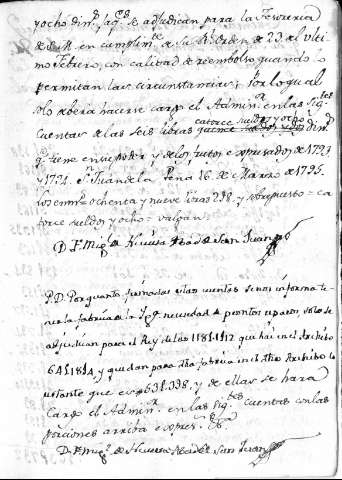 y ocho din.s se adjudican para la Tesoreria
de S.M. en cumplim.to de su R.l Orden de 23 del Ulti
mo Febrero, con calidad de reembolso quando lo
permitan las circunstancias; Por lo qual
solo deberá hacerse cargo el Admin.r en las sig.tes
catorce sueldos y ocho
Cuentas de las seis libras quince sueldos y dos din.s
q.e tiene en su poder y de los frutos expresados de 1793
y 1794. S.n Juan de la Peña 16 de Marzo de 1795.
Los enm.s ochenta y nueve libras 298. y sobrepuesto = ca
torce sueldos y ocho = valgan
D. Fr. Mig.l de Abad de San Juan
P.D. Por quanto firmadas estas cuentas se nos informa te
ner la fabrica de la Ig.a necesidad de prontos reparos, solo se
adjudican para el Rey de las 1181.1412 que hai en el Archibo
641.1814, y quedan para dha fabrica en el dho Archibo lo
restante que es 539 y de ellas se hara
Cargo el Admin.r en las sig.tes cuentas con las
porciones arriba expres.s
D. Fr. Mig.l de Abad de San Juan